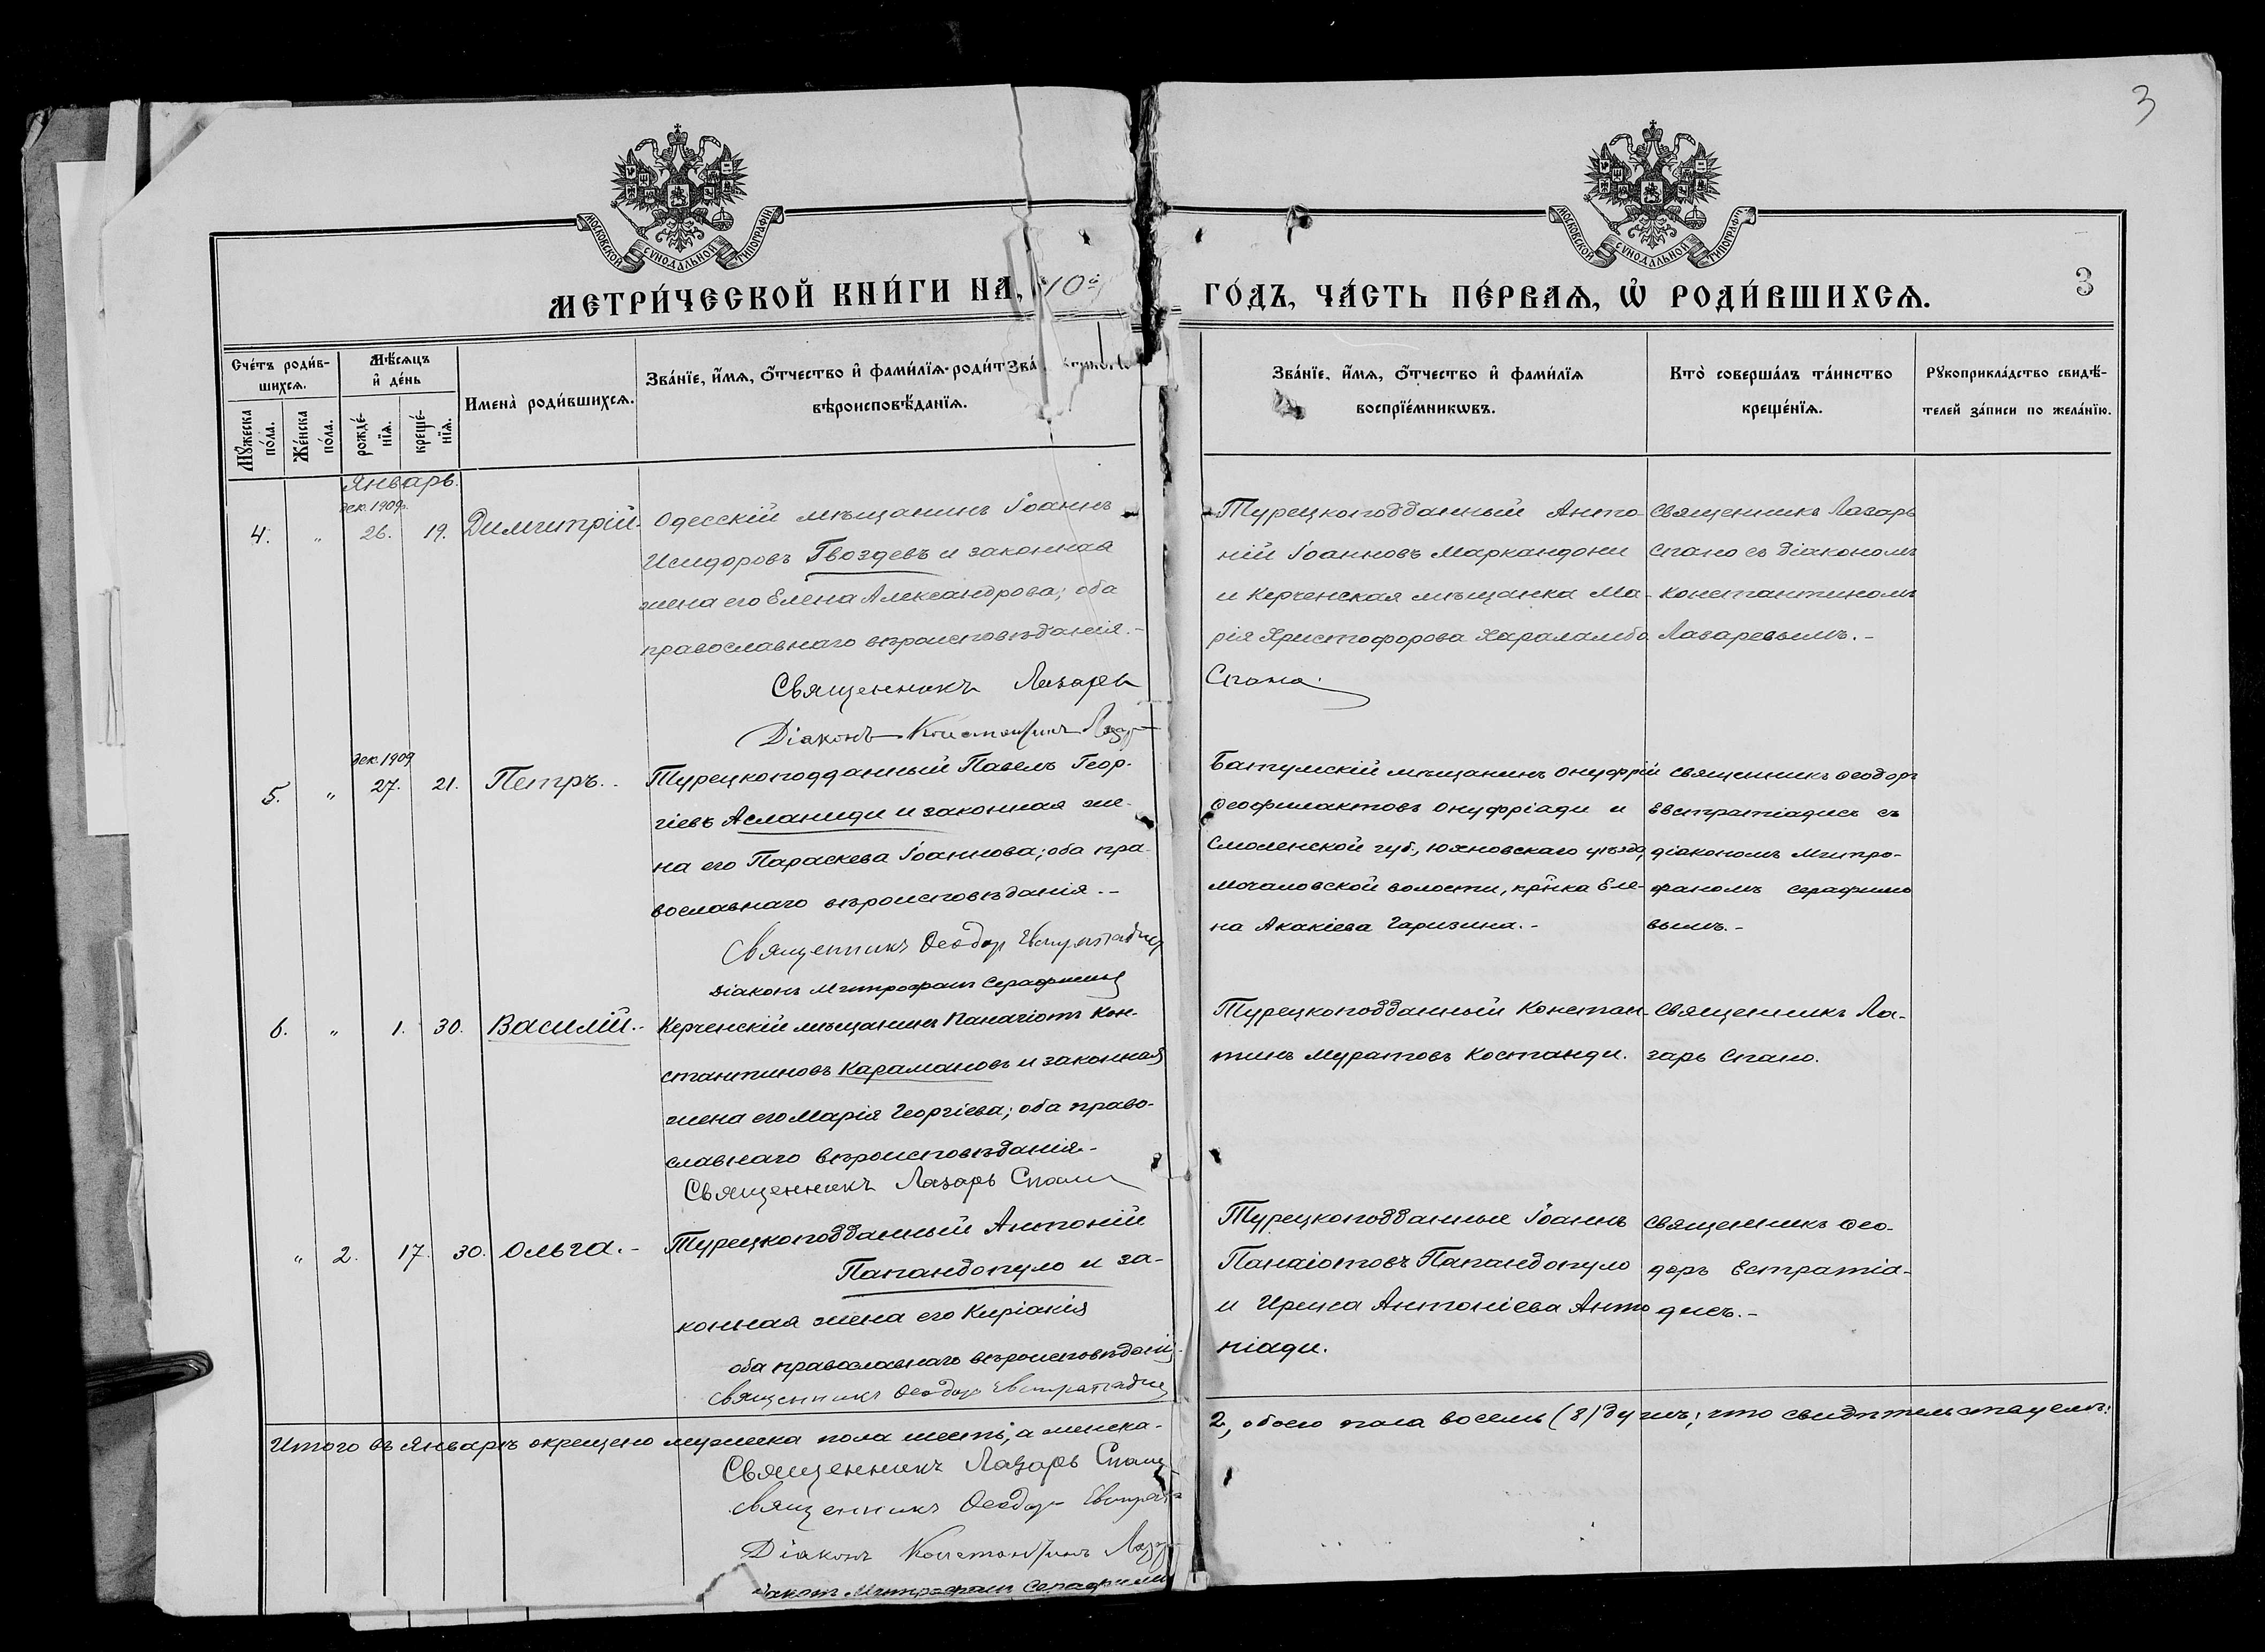 3
МОСКОВСКОЙ СѴНОДАЛЬНОЙ ТИПОГРАФІИ
МОСКОВСКОЙ СѴНОДАЛЬНОЙ ТИПОГРАФІИ
МЕТРИ́ЧЕСКОЙ КНИ́ГИ НА, 10й ГО́ДЪ, ЧА́СТЬ ПЕ́РВАѦ, Ѡ҆ РОДИ́ВШИХСѦ.
3
Сче́тъ роди́в-
шихсѧ.
Мꙋ́жеска
по́ла.
Же́нска
по́ла.
Мѣ́сѧцъ
и҆ де́нь
рожде́-
нїѧ.
креще́-
нїѧ.
Имена̀ роди́вшихсѧ.
Зва́нїе, и҆́мѧ, ѻ҆́тчество и҆ фами́лїѧ роди́т
вѣроисповѣ́данїѧ.
Зва́нїе, и҆́мѧ, ѻ҆́тчество и҆ фами́лїѧ
воспрїе́мникѡвъ.
Кто̀ соверша́лъ та́инство
креще́нїѧ.
Рꙋкоприкла́дство свидѣ́-
телей за́писи по жела́нїю.
Январь.
Дек. 1909г.
4. " 26. 19. Димитрій.
Одесскій мѣщанинъ Іоаннъ
Исидоровъ Гвоздевъ и законная
жена его Елена Александрова; оба
православнаго вѣроисповѣданія.-
Священникъ Лазарь
Діаконъ Константинъ Лазар
Турецкоподданный Анто
ній Іоанновъ Маркандони
и Керченская мѣщанка Ма-
рія Христофорова Хараламбо
Спано.
Священникъ Лазарь
Спано съ діакономъ
Константиномъ
Лазаревымъ.-
Дек. 1909
5. " 27. 21. Петръ.-
Турецкоподданный Павелъ Геор-
гіевъ Асланиди и законная же-
на его Параскева Іоаннова; оба пра-
вославнаго вѣроисповѣданія.-
Священникъ Ѳеодор Евстратіадис
Діаконъ Митрофанъ Серафимов
Батумскій мѣщанинъ Онуфрій
Ѳеофилактовъ Онуфріади и
Смоленской губ., Юхновскаго уѣзда,
Мочаловской волости, кр-нка Еле-
на Акакіева Гаризина.-
Священникъ Ѳеодоръ
Евстратіадисъ съ
діакономъ Митро-
фаномъ Серафимо
вымъ.-
6. " 1. 30. Василій.-
Керченскій мѣщанинъ Панагіотъ Кон-
стантиновъ Карамановъ и законная
жена его Марія Георгіева; оба право-
славнаго вѣроисповѣданія.-
Священникъ Лазарь Спано
Турецкоподданный Констан-
тинъ Муратовъ Костанди.
Священникъ Ла-
зарь Спано.
" 2. 17. 30. Ольга.-
Турецкоподданный Антоній
Папандопуло и за-
конная жена его Киріакія
оба православнаго вѣроисповѣданія
Священникъ Ѳеодор Евстратіадис
Турецкоподданные Іоаннъ
Панаіотовъ Папандопуло
и Ирина Антоніева Анто
ніади.
Священникъ Ѳео-
доръ Естратіа-
дисъ.-
Итого въ Январѣ окрещено мужеска пола шесть, а женска- 2, обоего пола восемь (8) душъ; что свидѣтельствуемъ:
Священникъ Лазарь Спано
Священникъ Ѳеодор Евстрат
Діаконъ Константинъ Лазар
Діаконъ Митрофанъ Серафимов